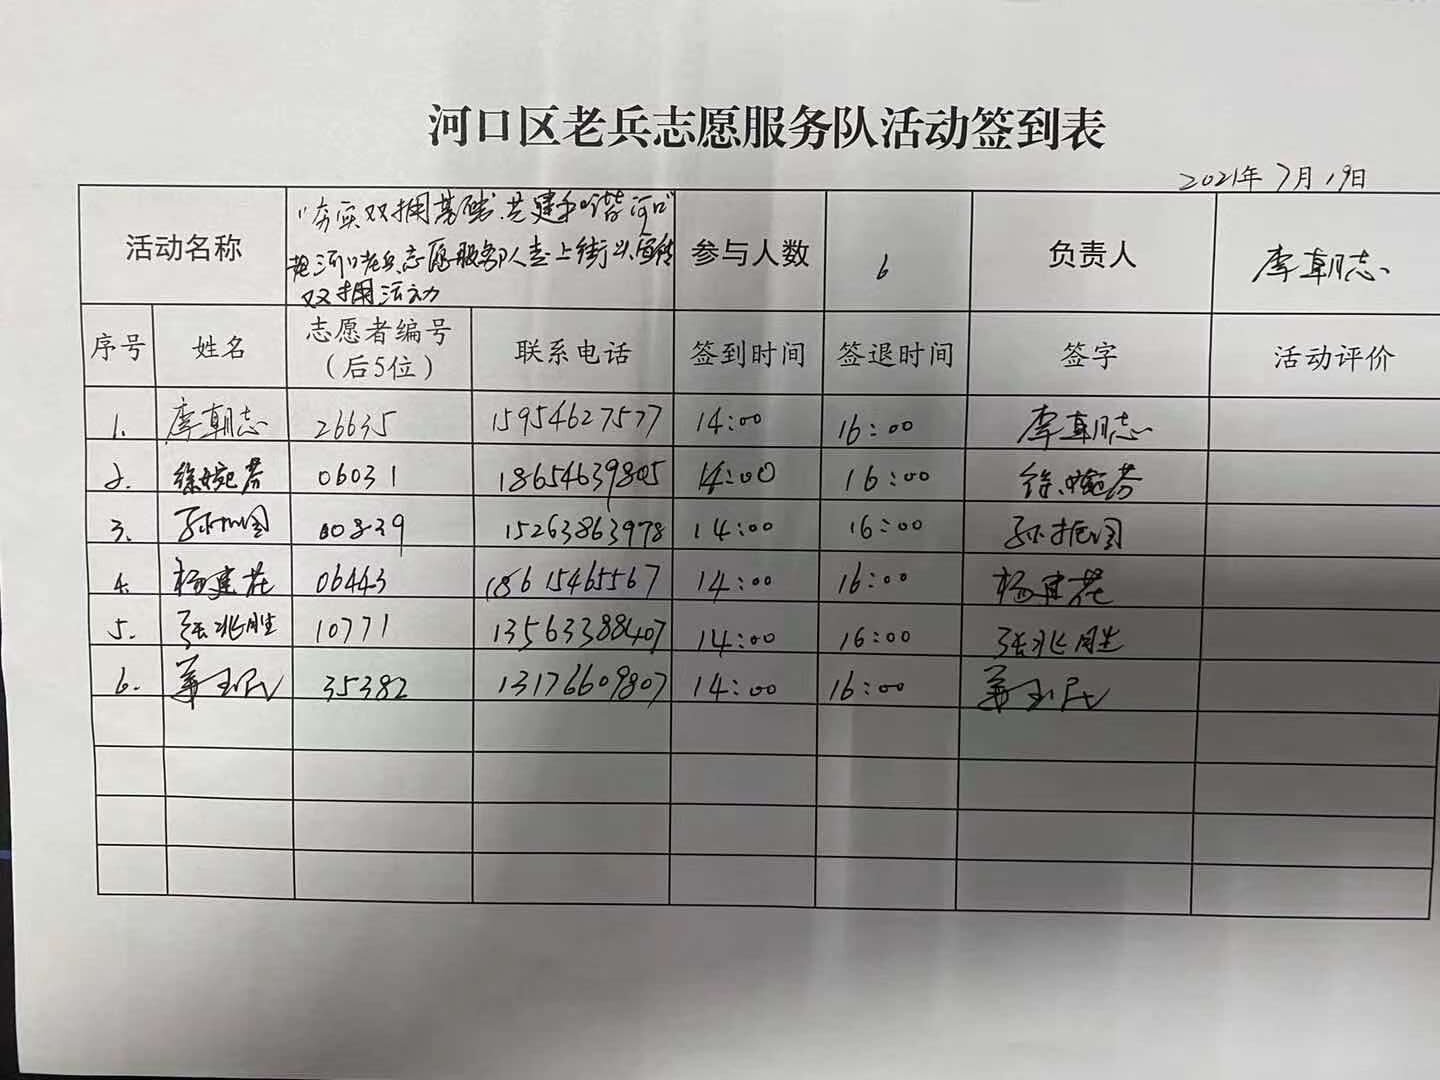 河口区老兵志愿服务队活动签到表
2021年7月19日
活动名称 "夯实双拥基础 共建和谐河口" 参与人数 6 负责人 李朝志
河口老兵志愿服务队走上街头宣传
双拥活动
序号 姓名 志愿者编号（后5位） 联系电话 签到时间 签退时间 签字 活动评价
1. 李朝志 26635 15954627577 14:00 16:00 李朝志
2. 徐婉芬 06031 18654639805 14:00 16:00 徐婉芬
3. 00839 15263863978 14:00 16:00 孙振国
4. 杨建花 06443 18615465567 14:00 16:00 杨建花
5. 张兆胜 10771 13563388407 14:00 16:00 张兆胜
6. 姜玉民 35382 13176609807 14:00 16:00 姜玉民